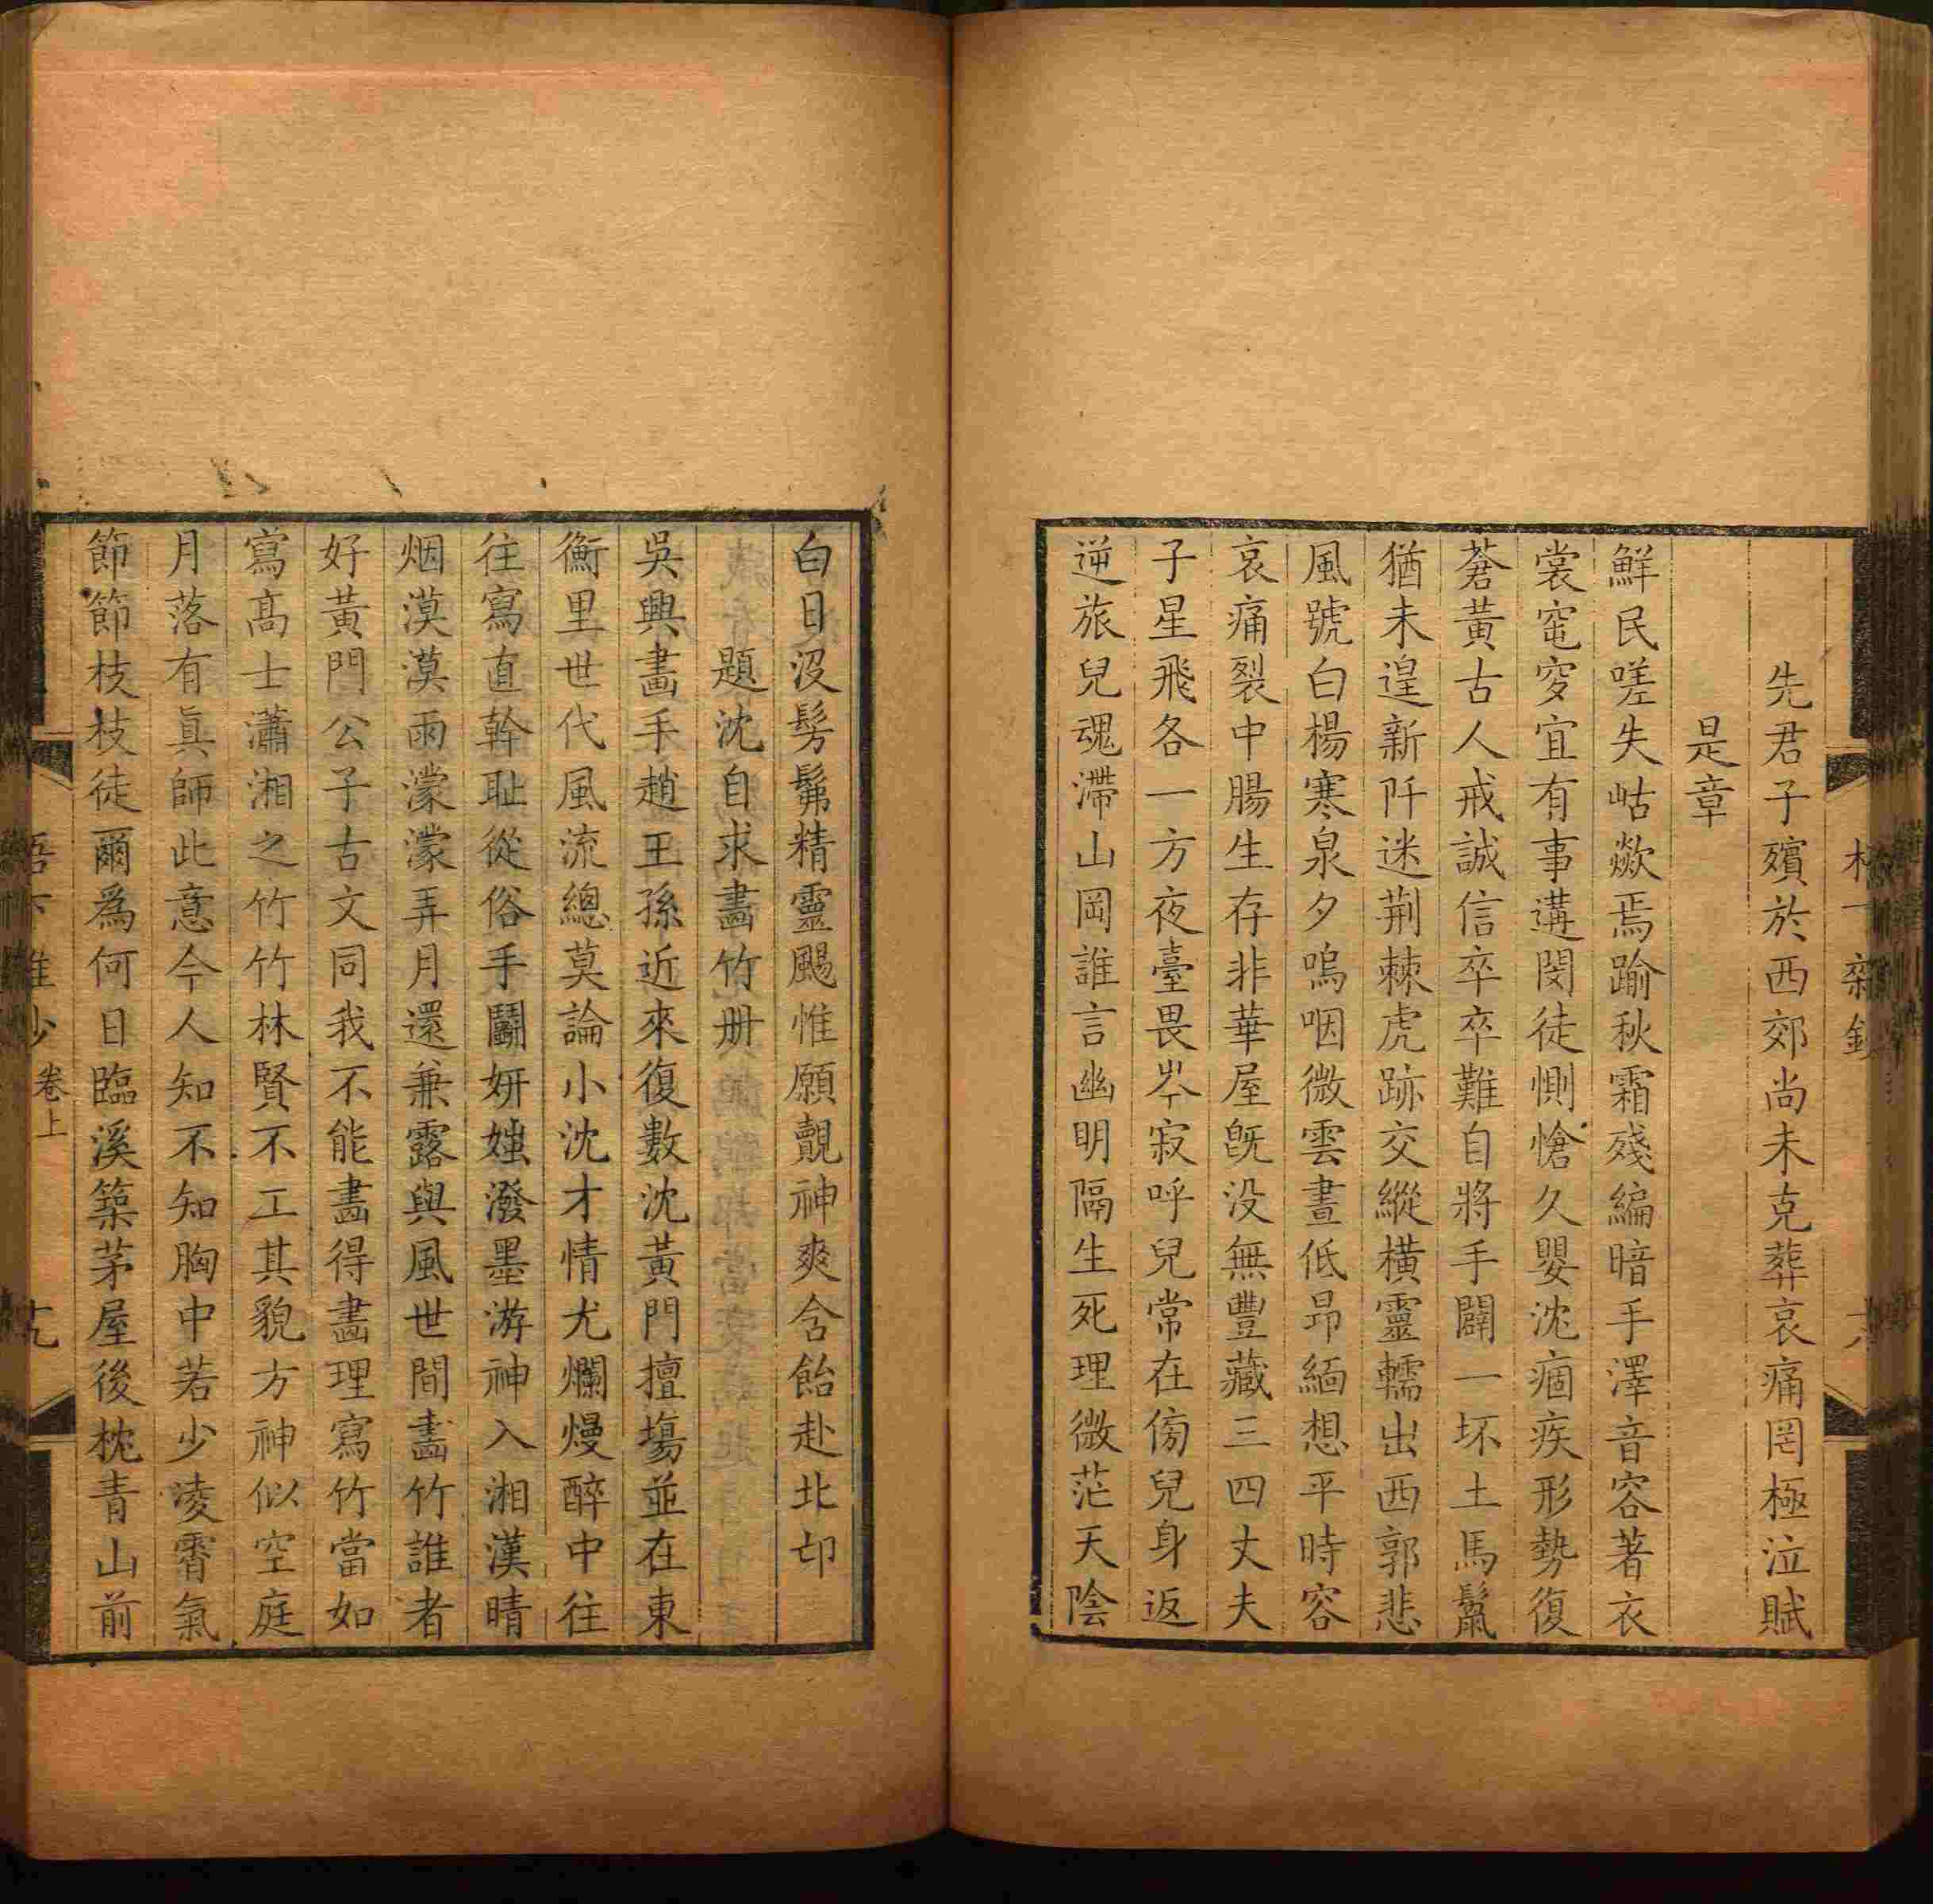 先君子殯於西郊尚未克葬哀痛罔極泣賦
是章
鮮民嗟失岵歘焉踰秋霜殘編暗手澤音容著衣
裳窀穸宜有事遘閔徒惻愴久嬰沈痼疾形勢復
蒼黃古人戒誠信卒卒難自將手闢一坏土馬鬣
猶未遑新阡迷荆棘虎跡交縱橫靈轜出西郭悲
風號白楊寒泉夕嗚咽微雲晝低昂緬想平時容
哀痛裂中腸生存非華屋旣没無豐藏三四丈夫
子星飛各一方夜臺畏岑寂呼兒常在傍兒身返
逆旅兒魂滯山岡誰言幽明隔生死理微茫天陰
白日沒髣髴精靈颺惟願覿神爽含飴赴北邙
題沈自求畫竹册
吳興畫手趙王孫近來復數沈黃門擅塲並在東
衡里世代風流總莫論小沈才情尤爛熳醉中往
往寫直幹耻從俗手鬭妍媸潑墨游神入湘漢晴
烟漠漠雨濛濛弄月還兼露與風世間畫竹誰者
好黃門公子古文同我不能畫得畫理寫竹當如
寫高士瀟湘之竹竹林賢不工其貌方神似空庭
月落有眞師此意今人知不知胸中若少凌霄氣
節節枝枝徒爾爲何日臨溪築茅屋後枕青山前
卷上